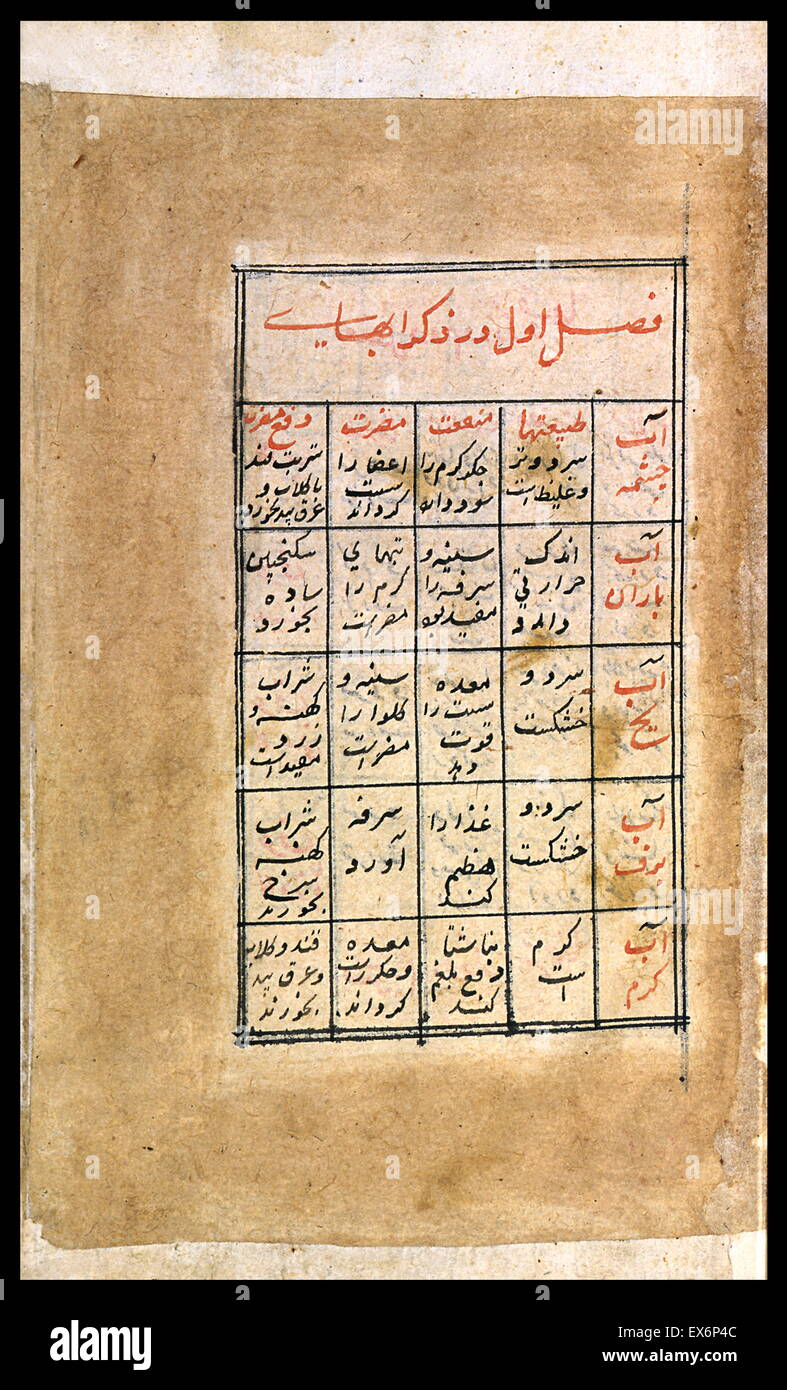 فصل اول در ذکر ابهاے
آب
چشمه
طبیعتها
سرد و تر
و غلیظ است
منفعت
جکر کرم را
سود دارد
مضرت
اعضا را
سست
کرداند
دفع مضرت
شربت قند
با کلاب و
عرق بید بخورد
آب
باران
اندک
حرارتی
دارد
سینه و
سرفه را
مفید بود
تبهای
کرم را
مضر است
سکنجبین
ساده
بخورد
آب
یخ
سرد و
خشکست
معده
سست را
قوت
دهد
سینه و
کلو را
مضر است
شراب
کهنه و
زرد
مفید است
آب
برف
سرد و
خشکست
غذا را
هضم
کند
سرفه
آورد
شراب
کهنه
سرخ
بخورند
آب
کرم
کرم
است
بناشتا
دفع بلغم
کند
معده
و جکر را سست
کرداند
قند و کلاب
و عرق بید
بخورند
alamy
alamy
alamy
alamy
EX6P4C
www.alamy.com